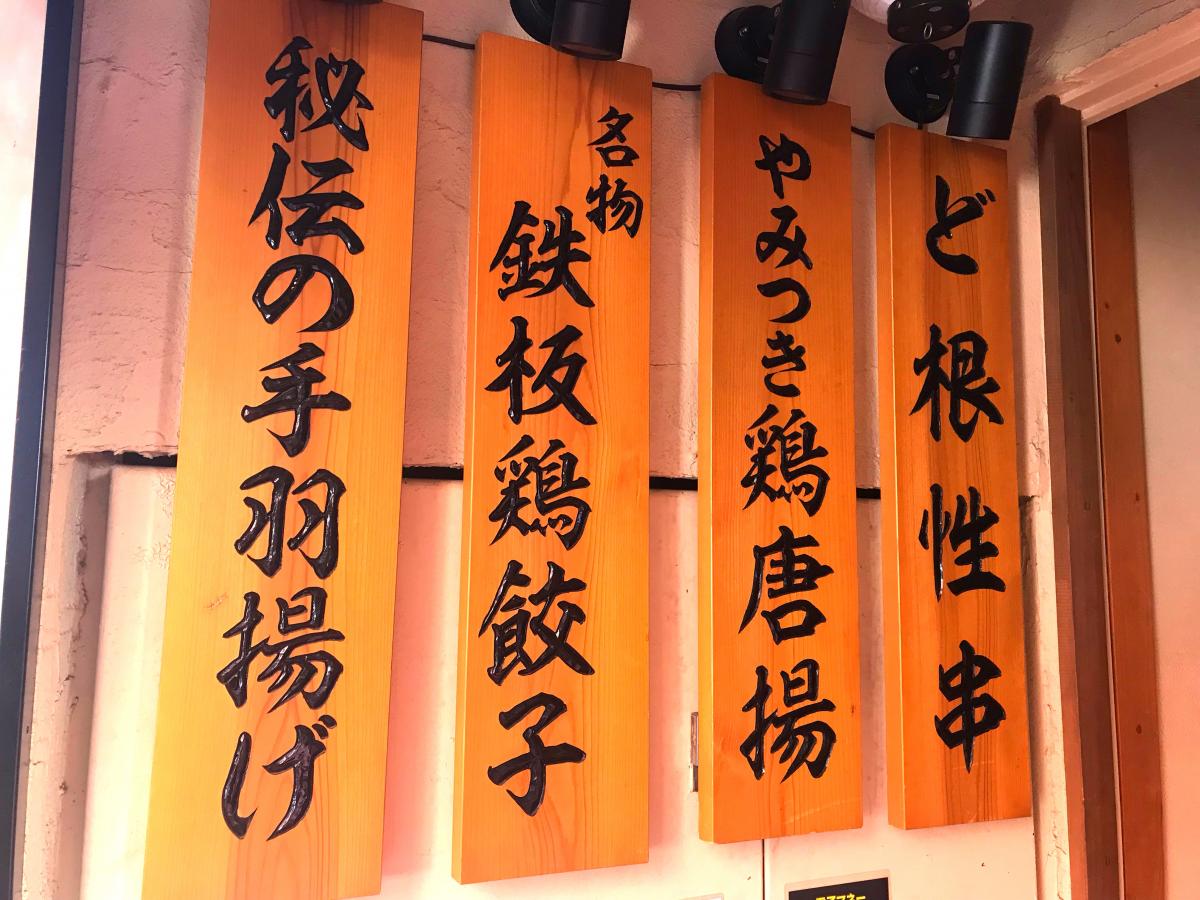 ど根性串
やみつき鶏唐揚
名物
鉄板鶏餃子
秘伝の手羽揚げ